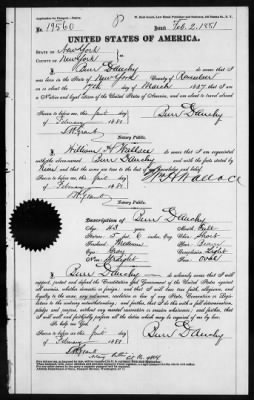 No. 19560
8
Issued Feb. 2. 1881
UNITED STATES OF AMERICA.
STATE OF New York
COUNTY OF New York
I, Burr Dauchy do swear that I
was born in the State of New York County of
on the 17th day of March 1837, that I am
a Native and loyal Citizen of the United States of America, and am about to travel abroad.
Sworn to before me, this first day
of February 1881
Burr Dauchy
Notary Public.
I, William H Wallace do swear that I am acquainted
with the above-named Burr Dauchy and with the facts stated by
him; and that the same are true to the best of my knowledge and belief.
Sworn to before me, this first day
of February 1881
Wm H Wallace
Notary Public.
Description of Burr Dauchy
Age 43 years
Mouth Full
Stature 5 feet 6 inches, Eng.
Chin Short
Forehead Medium
Hair
Eyes Gray
Complexion Light
Nose Straight
Face Oval
I, Burr Dauchy do solemnly swear that I will
support, protect and defend the Constitution and Government of the United States against
all enemies, whether domestic or foreign; and that I will bear true faith, allegiance, and
loyalty to the same, any ordinance, resolution or law of any State, Convention or Legis-
lature to the contrary notwithstanding; and further, that I do this with a full determination,
pledge and purpose, without any mental reservation or evasion whatsoever; and further, that
I will well and faithfully perform all the duties which may be required of me by law.
So help me God.
Sworn to before me, this first day
of February 1881
Burr Dauchy
Notary Public